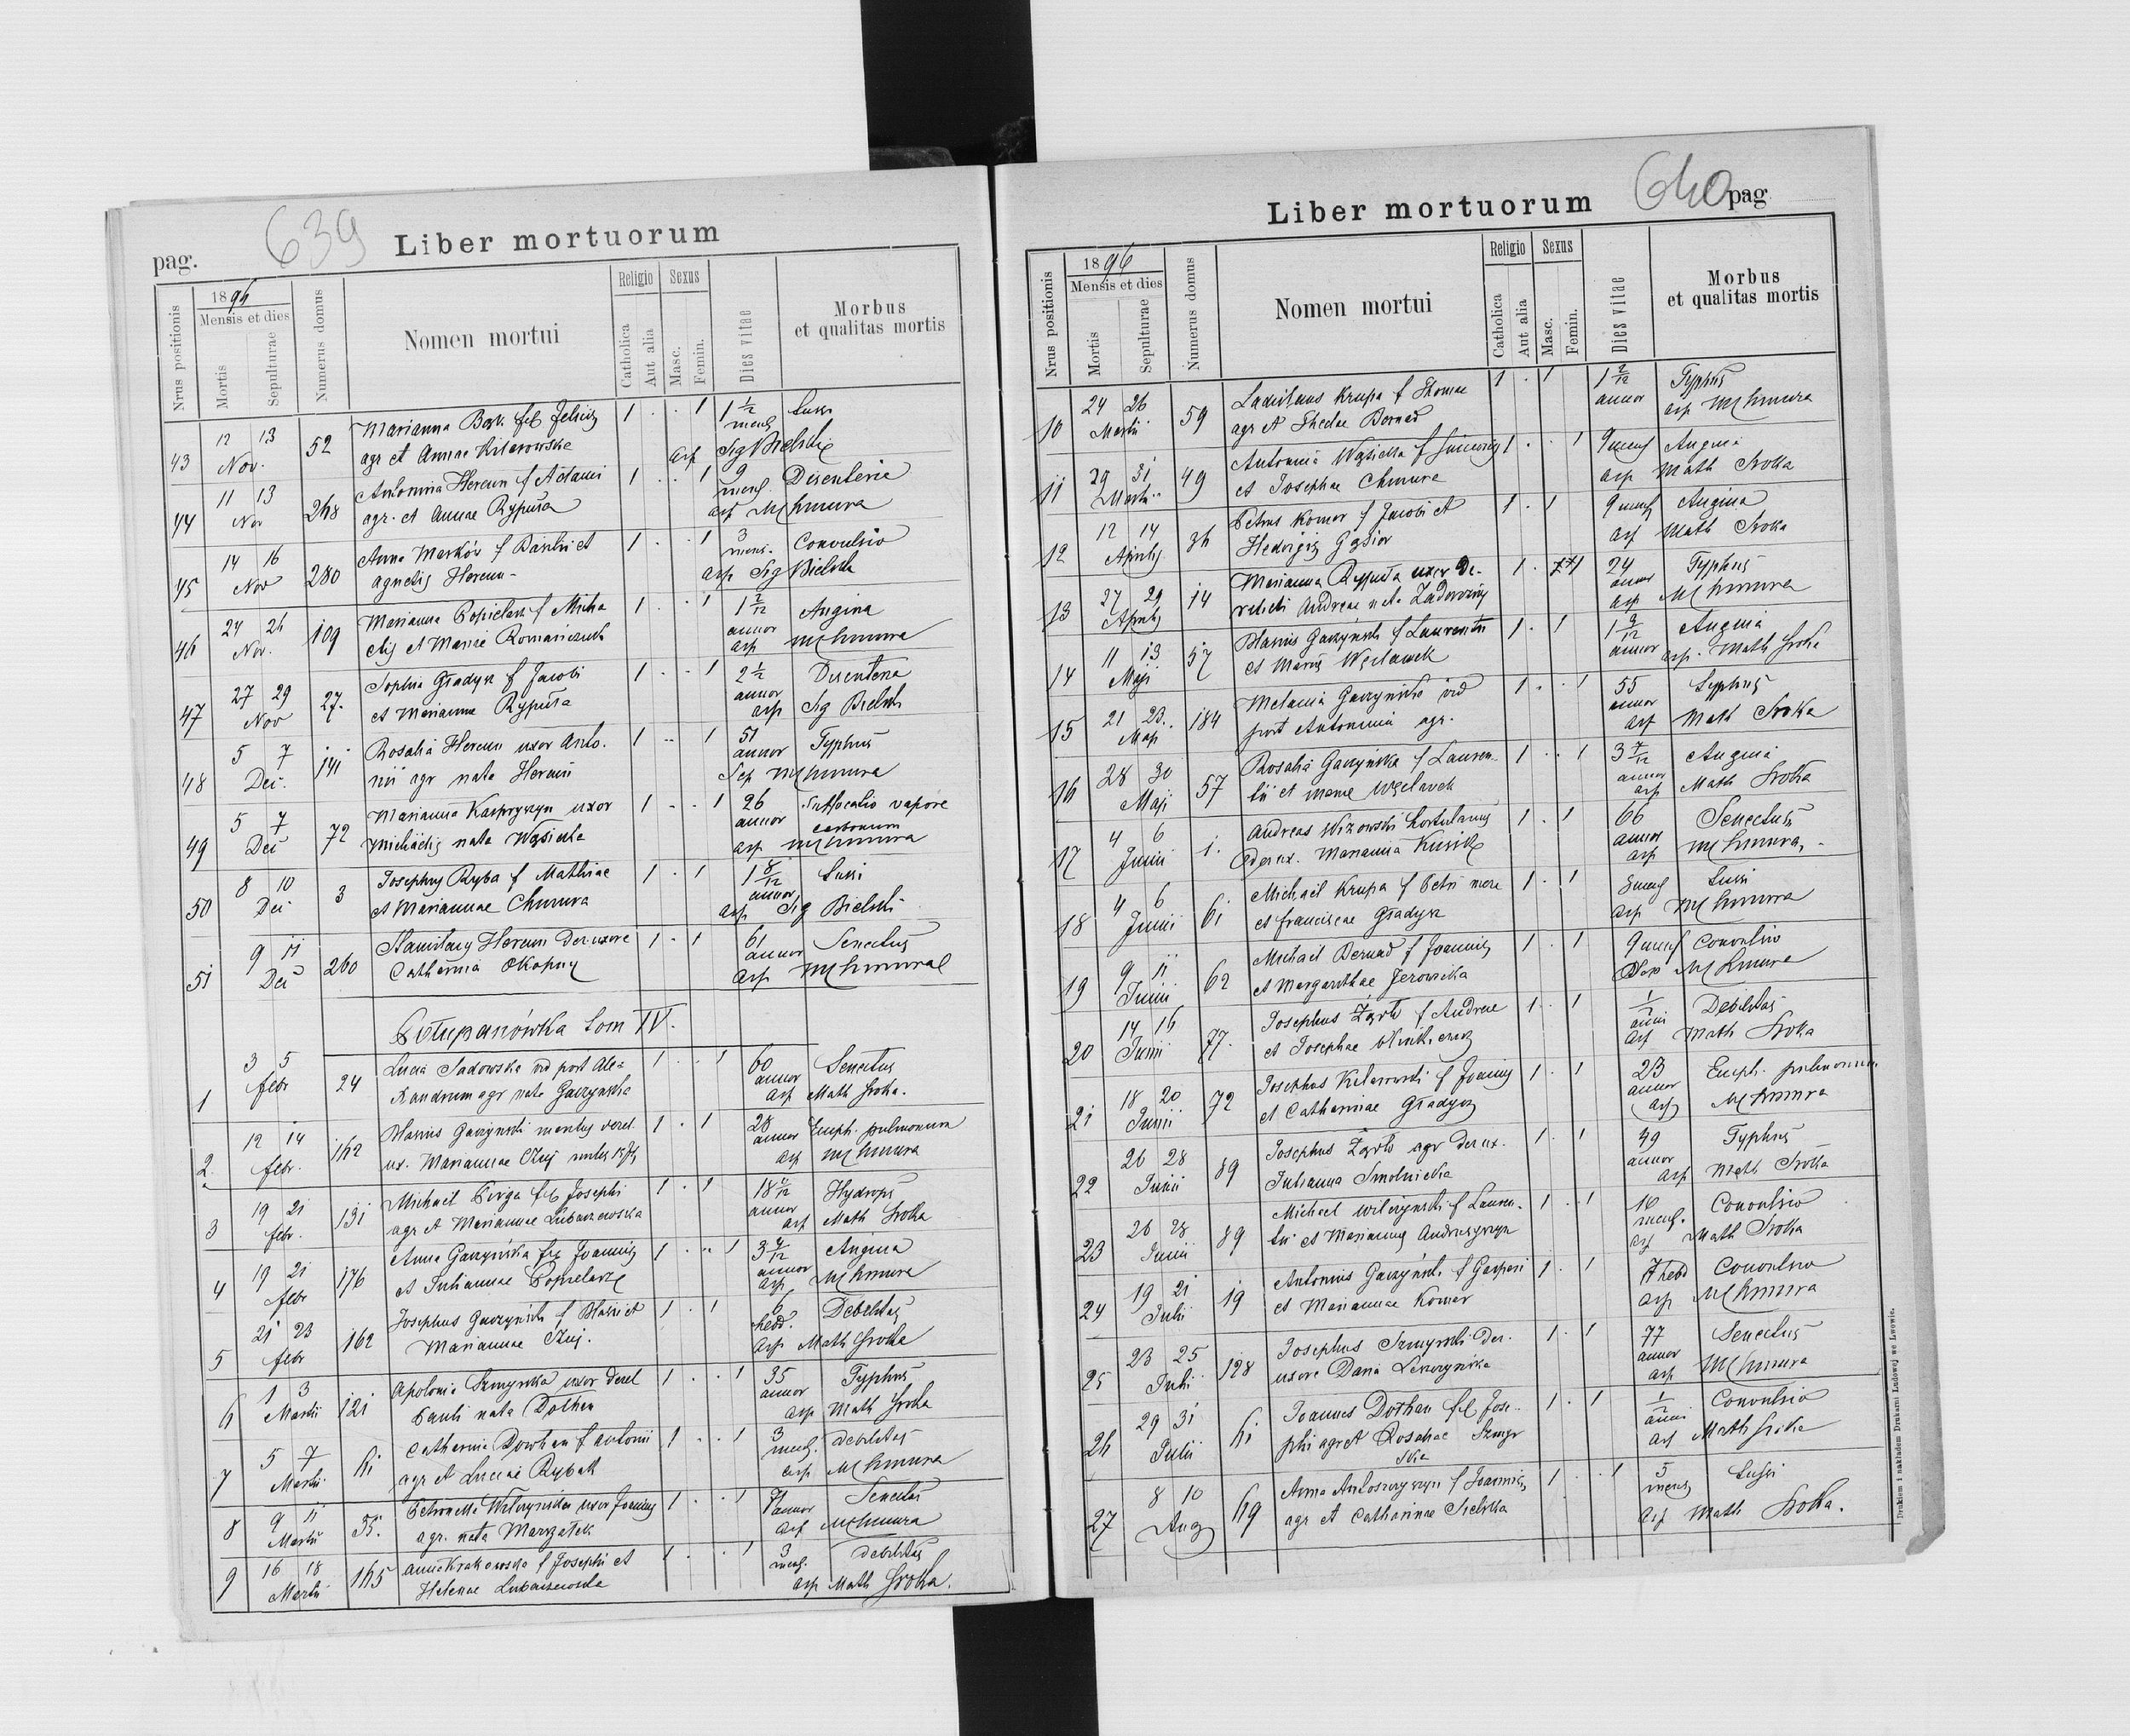 639
pag.
Liber mortuorum
Nrus positionis
1896
Mensis et dies
Mortis
Sepulturae
Numerus domus
Nomen mortui
Religio
Catholica
Aut alia
Sexus
Masc.
Femin.
Dies vitae
Morbus
et qualitas mortis
43 12 13 Nov. 52 Marianna 1 . . 1 1 1/2 Tussi
agr et Annae asp Sig Bielski
44 11 13 Nov 268 Antonina Hercun f Adami 1 . . 1 9 mens Disenteria
agr. et Annae Ryputa asp M Chmura
45 14 16 Nov 280 Anna f Basilii et 1 . . 1 3 mens. Convulsio
agnetis Hercun asp Sig Bielski
46 24 26 Nov. 109 Marianna f Micha 1 . . 1 1 2/12 annor Angina
elis et Mariae Romanczuk asp M Chmura
47 27 29 Nov 27. Sophia Gładysz f Jacobi 1 . . 1 2 1/2 annor Disenteria
et Marianna Ryputa asp Sig Bielski
48 5 7 Dec. 141 Rosalia Hercun uxor Anto. 1 . . 1 51 annor Typhus
nii agr nata Hercun M Chmura
49 5 7 Dec 72 Marianna Kasprzyszyn uxor 1 . . 1 26 annor Suffocatio vapore
carbonum
Michaelis nata Wąsicka asp M Chmura
50 8 10 Dec 3 Josephus Ryba f Mathiae 1 . 1 1 8/12 annor Tussi
et Mariannae Chmura asp Sig Bielski
51 9 11 Dec 260 Stanislaus Hercun Der uxore 1 . 1 61 annor Senectus
Catharina Okopny asp M Chmura
Tom IV.
1 3 5 febr 24 Lucia Sadowska vid post Ale= 1 . . 1 60 annor Senectus
xandrum agr nata Gaczyńska asp Math Sroka.
2. 12 14 febr. 162 Blasius Gaczyński 1 . 1 28 annor Emph. pulmonum
ux. Mariannae asp M Chmura
3 19 21 febr. 131 Michael Pirga fil Josephi 1 . 1 18 annor Hydrops
agr et Mariannae Lubaszewska asp Math Sroka
4 19 21 febr 176 Anna Gaczyńska fil Joannis 1 . . 1 3 annor Angina
et Juliannae asp M Chmura
5 21 23 febr 162 Josephus Gaczyński f Blasii et 1 . 1 6 hebd. Debilitas
Mariannae asp Math Sroka
6 1 3 Martii 121 Apolonia Szmyrska uxor derel 1 . . 1 35 annor Typhus
Pauli nata Dothan asp Math Sroka
7 5 7 Martii 61 Catharina Dowhan f Antonii 1 . . 1 3 mens. Debilitas
agr et Luciae Rybak asp M Chmura
8 9 11 Martii 35. Petronella Wilczyńska uxor Joannis 1 . . 1 71 annor Senectus
agr. nata Marszałek asp M Chmura
9 16 18 Martii 165 Anna Krakowska f Josephi et 1 . . 1 3 mens. debilitas
Helenae Lubaszewska asp Math Sroka.
Liber mortuorum
640
pag
Nrus positionis
1896
Mensis et dies
Mortis
Sepulturae
Numerus domus
Nomen mortui
Religio
Catholica
Aut alia
Sexus
Masc.
Femin.
Dies vitae
Morbus
et qualitas mortis
10 24 26 Martii 59 Ladislaus Krupa f Thomae 1 . 1 1 annor Typhus
agr et Theclae Bernad asp M Chmura
11 29 31 Martii 49 Antonia Wąsicka f 1 . . 1 9 mens Angina
et Josephae Chmura asp Math Sroka
12 12 14 Aprilis 36 Petrus Komar f Jacobi et 1 . 1 9 mens Angina
Hedvigis Gąsior asp Math Sroka
13 27 29 Aprilis 14 Marianna Ryputa uxor De. 1 . 1 24 annor Typhus
relicti Andreae nata asp M Chmura
14 11 13 Maji 57 Blasius Gaczyński f Laurentii 1 . 1 1 9/12 annor Angina
et Mariae Węcławek asp. Math Sroka
15 21 23. Maji 184 Melania Gaczyńska vid 1 . . 1 55 annor Typhus
post Antonium agr. asp Math Sroka
16 28 30 Maji 57 Rosalia Gaczyńska f Lauren- 1 . . 1 3 7/12 annor Angina
tii et Mariae Węcławek asp Math Sroka
17 4 6 Junii 1. Andreas Wizowski hortulanus 1 . 1 66 annor Senectus
Der ux. Marianna asp M Chmura
18 4 6 Junii 61 Michael Krupa f Petri 1 . 1 3 mens Tussi
et Franciscae Gładysz asp M Chmura
19 9 11 Junii 62 Michael Bernad f Joannis 1 . 1 9 mens Convulsio
et Margarithae Jerowicka M Chmura
20 14 16 Junii 77. Josephus f Andreae 1 . 1 1/2 anni Debilitas
et Josephae asp Math Sroka
21 18 20 Junii 72 Josephus f Joannis 1 . 1 23 annor Emph. pulmonum
et Catharinae Gładysz asp M Chmura
22 26 28 Junii 89 Josephus agr Der ux. 1 . 1 49 annor Typhus
Julianna Smolnicka asp Math Sroka
23 26 28 Junii 89 Michael Wilczyński f Lauren. 1 . 1 10 mens. Convulsio
tii et Mariannae Andruszyszyn asp Math Sroka
24 19 21 Julii 19 Antonius Gaczyński f Gaspari 1 . 1 7 hebd Convulsio
et Mariannae Komar asp M Chmura
25 23 25 Julii 128 Josephus Szmyrski Der. 1 . 1 77 annor Senectus
uxore Daria Leszczyńska asp M Chmura
26 29 31 Julii 61 Joannes Dothan fil Jose- 1 . 1 1/2 anni Convulsio
phi agr et Rosaliae Szmyr
ska asp Math Sroka
27 8 10 Aug 69 Anna Antoszczyszyn f Joannis 1 . . 1 5 mens Tussi
agr et Catharinae Sielska asp Math Sroka.
Drukiem i nakładem Drukarni Ludowej we Lwowie.